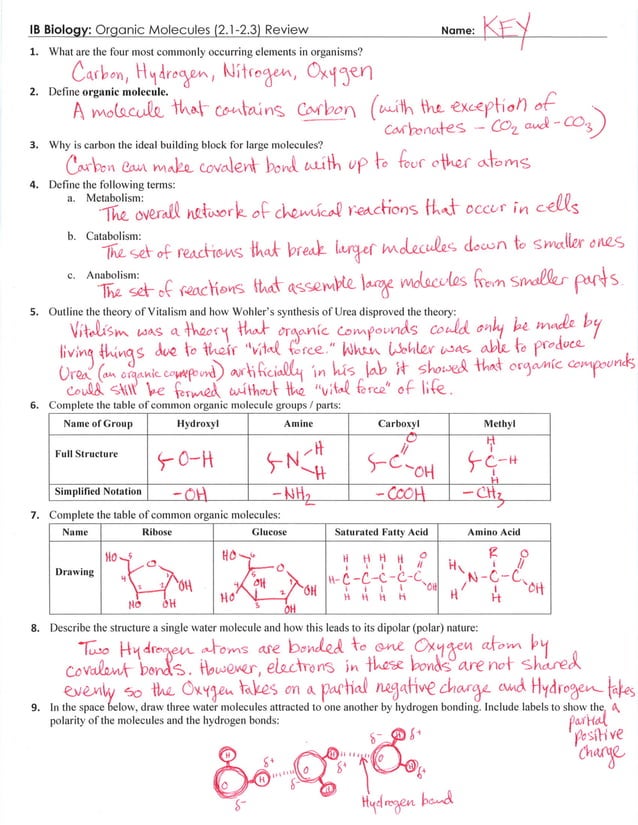 IB Biology: Organic Molecules (2.1-2.3) Review Name: KEY
1. What are the four most commonly occurring elements in organisms?
Carbon, Hydrogen, Nitrogen, Oxygen
2. Define organic molecule.
A molecule that contains Carbon (with the exception of
carbonates - CO2 and -CO3)
3. Why is carbon the ideal building block for large molecules?
Carbon can make covalent bond with up to four other atoms
4. Define the following terms:
a. Metabolism:
The overall network of chemical reactions that occur in cells
b. Catabolism:
The set of reactions that break larger molecules down to smaller ones
c. Anabolism:
The set of reactions that assemble large molecules from smaller parts.
5. Outline the theory of Vitalism and how Wohler's synthesis of Urea disproved the theory:
Vitalism was a theory that organic compounds could only be made by
living things due to their "vital force." When Wohler was able to produce
Urea (an organic compound) artificially in his lab it showed that organic compounds
could still be formed without the "vital force" of life.
6. Complete the table of common organic molecule groups / parts:
Name of Group Hydroxyl Amine Carboxyl Methyl
Full Structure O-H N H H C O OH H C-H H
Simplified Notation -OH -NH2 -COOH -CH3
7. Complete the table of common organic molecules:
Name Ribose Glucose Saturated Fatty Acid Amino Acid
Drawing
HO 5 O 4 1 3 2 OH HO OH
HO 6 5 O 4 OH 1 OH HO 3 2 OH
H H H H O
H-C-C-C-C-C OH
H H H H
H R O
N-C-C OH
H H
8. Describe the structure a single water molecule and how this leads to its dipolar (polar) nature:
Two Hydrogen atoms are bonded to one Oxygen atom by
covalent bonds. However, electrons in these bonds are not shared
evenly so the Oxygen takes on a partial negative charge and Hydrogen takes
a
partial
positive
charge
9. In the space below, draw three water molecules attracted to one another by hydrogen bonding. Include labels to show the
polarity of the molecules and the hydrogen bonds:
δ- H δ+
H δ+ O δ+ O H
O H δ- H
δ-
Hydrogen bond